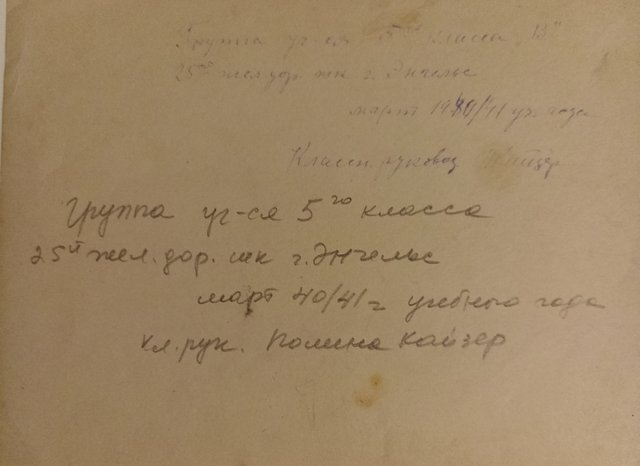 Группа уч-ся 5го класса „В"
25ой жел.дор. шк г. Энгельс
март 1940/41 уч. года
Классн. руковод
Группа уч-ся 5го класса
25й жел.дор. шк г. Энгельс
март 40/41= учебного года
кл.рук. Полина Кайзер